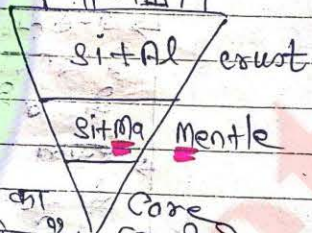 Si+Al crust
Si+Ma Mentle
का Core